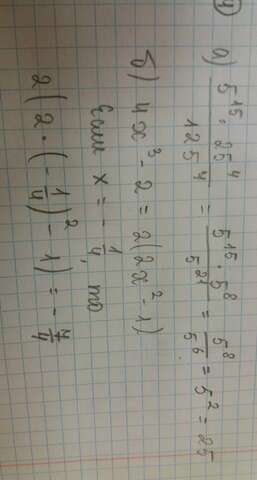 4)
а) \frac{5^{15} \cdot 25^4}{125^4} = \frac{5^{15} \cdot 5^8}{5^{21}} = \frac{5^8}{5^6} = 5^2 = 25
б) 4x^3 - 2 = 2(2x^2 - 1)
Если x = -\frac{1}{4}, то
2(2 \cdot (-\frac{1}{4})^2 - 1) = -\frac{7}{4}